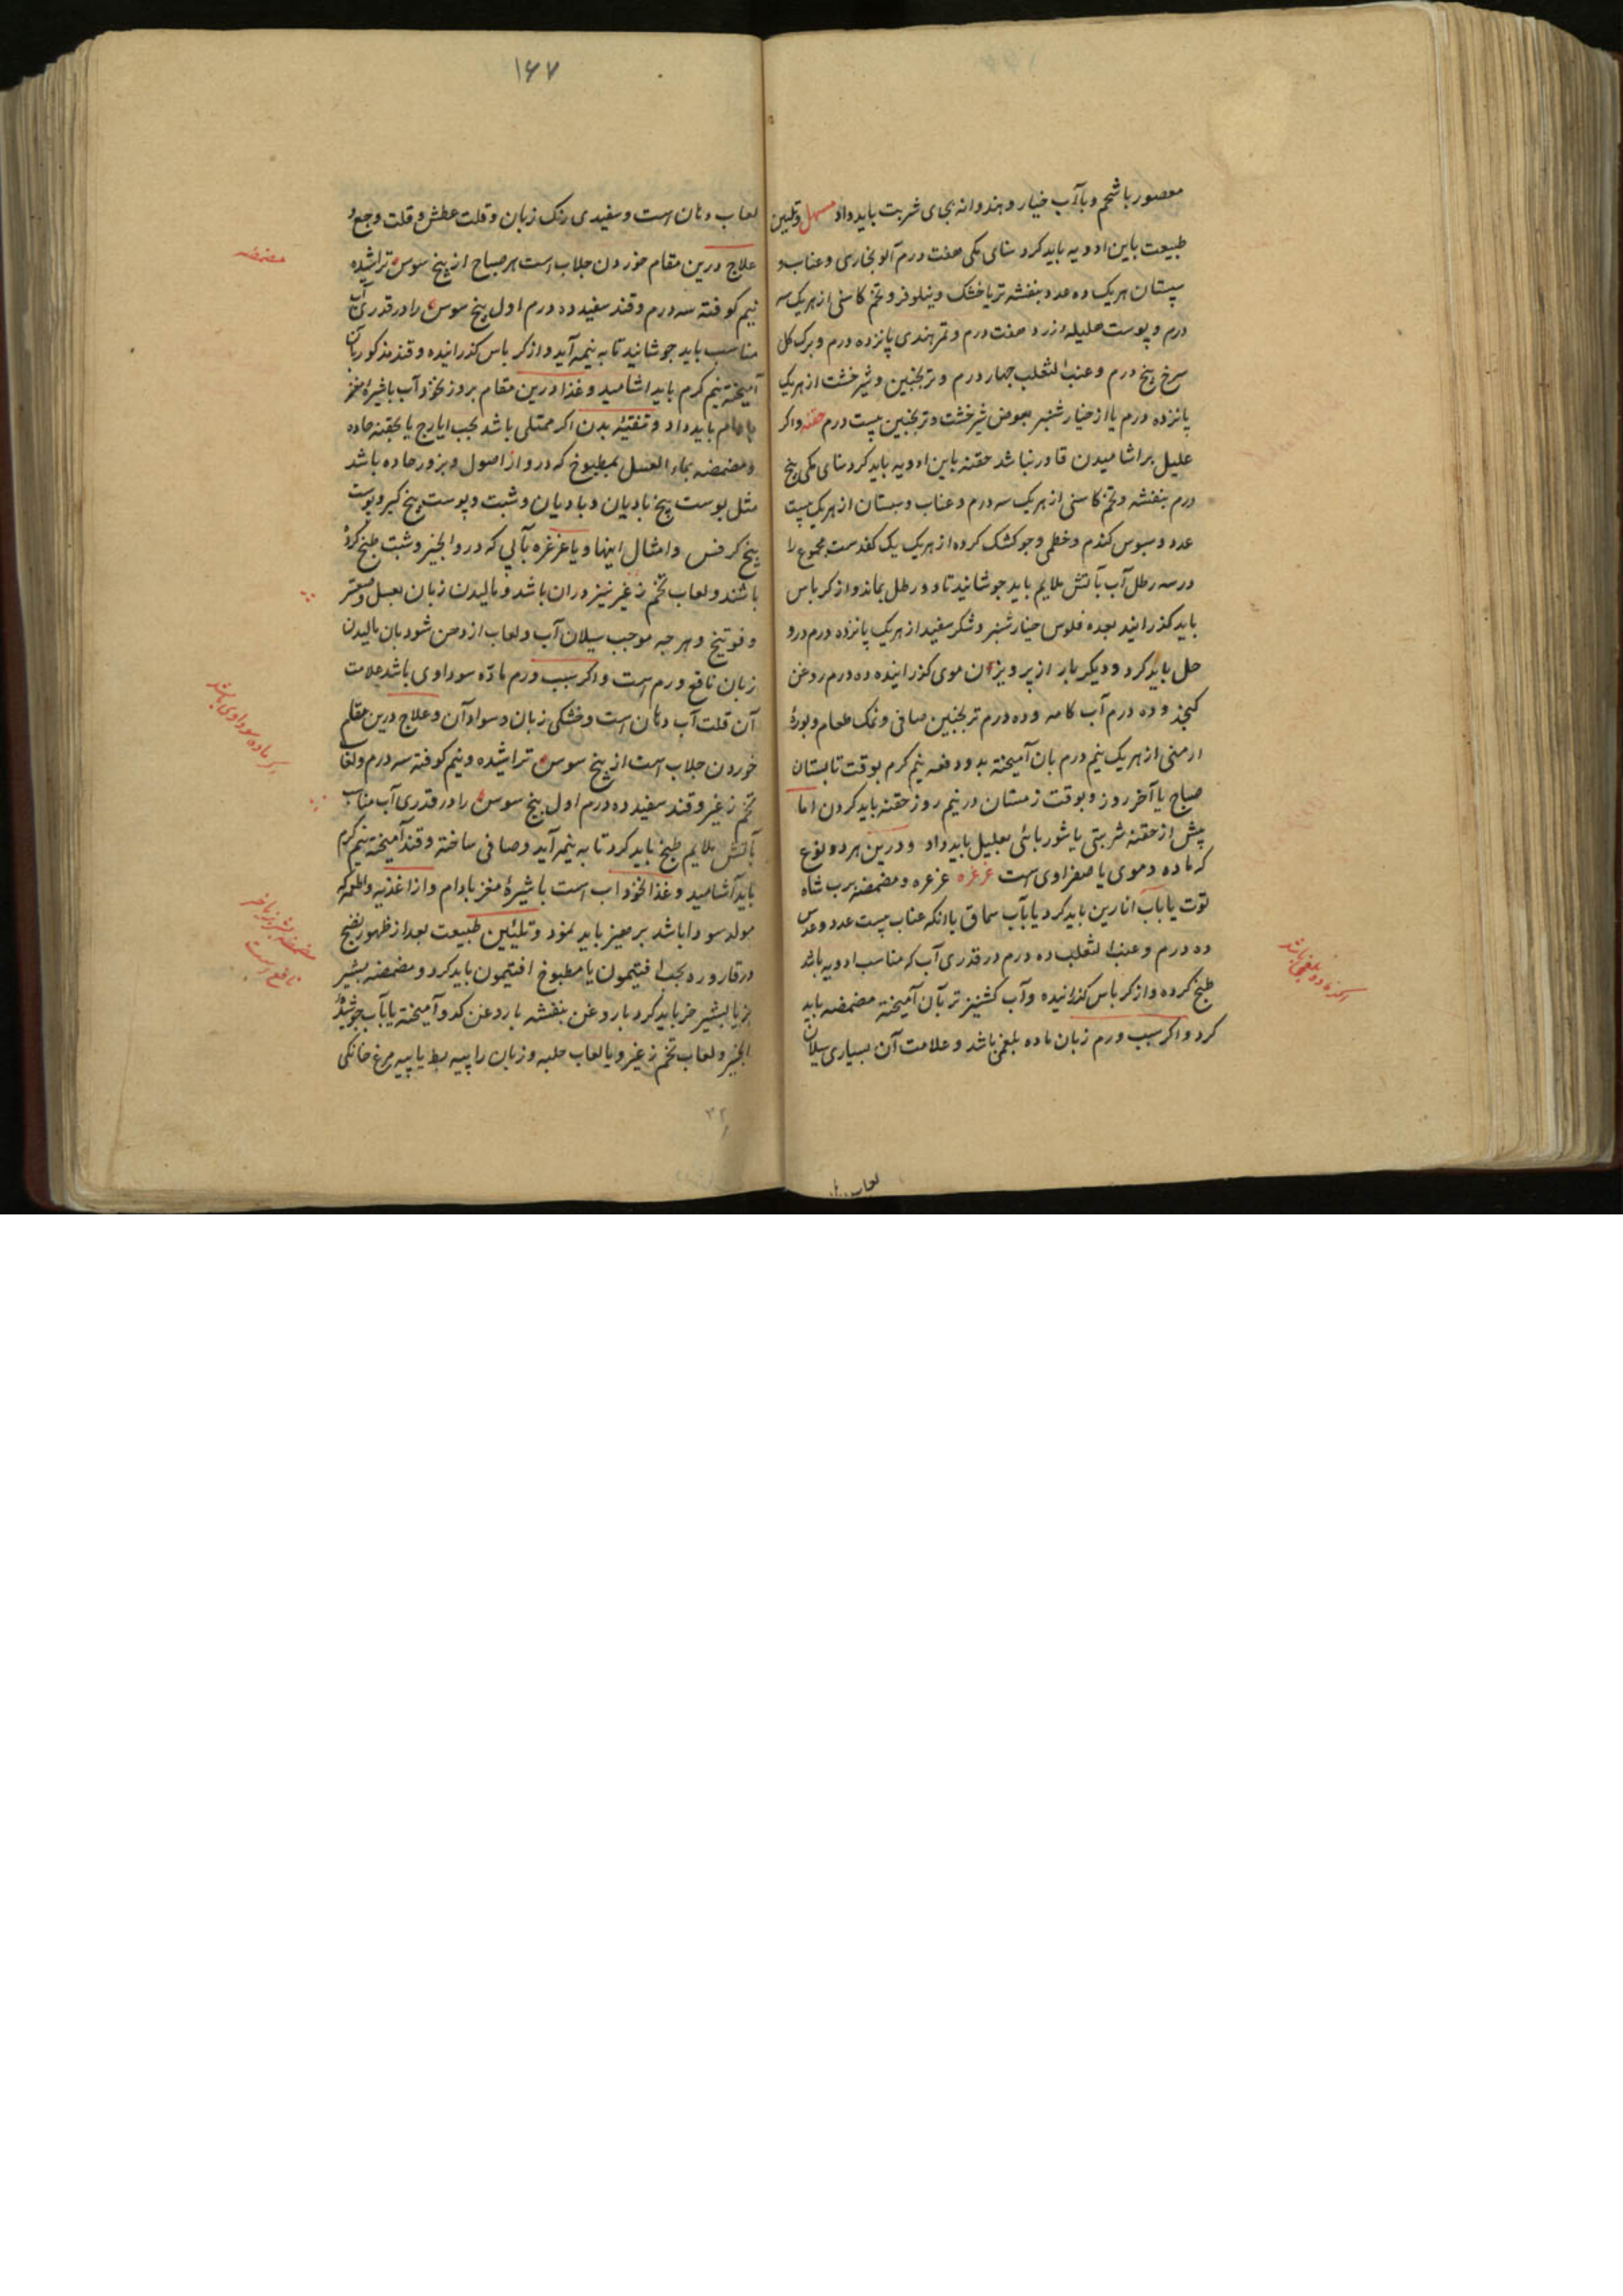 معصور باشحم وبا آب خیار وهندوانه بجای شربت باید داد مسهل وتلیین
طبیعت باین ادویه باید کرد سنای مکی هفت درم آلو بخاری وعناب و
سپستان هریک ده عدد بنفشه تر یا خشک ونیلوفر وتخم کاسنی از هریک سه
درم وپوست هلیله زرد هفت درم وتمر هندی پانزده درم وبرک کل
سرخ پنج درم وعنب الثعلب چهار درم وترنجبین وشیرخشت از هریک
پانزده درم یا از خیارشنبر بعوض شیرخشت وترنجبین بیست درم حقنه واکر
علیل بر اشامیدن قادر نباشد حقنه باین ادویه باید کرد سنای مکی پنج
درم بنفشه وتخم کاسنی از هریک سه درم وعناب وسپستان از هریک بیست
عدد وسبوس کندم وخطمی وجو کشک کرده از هریک یک کفدست مجموع را
در سه رطل آب بآتش ملایم باید جوشانید تا دو رطل بماند واز کرباس
باید کذرانید بعده فلوس خیارشنبر وشکر سفید از هریک پانزده درم درو
حل باید کرد ودیکر بار از پرویزن موی کذرانیده ده درم روغن
کنجد وده درم آب کامه وده درم ترنجبین صافی ونمک طعام وبورۀ
ارمنی از هریک نیم درم بان آمیخته بدو دفعه نیم کرم بوقت تابستان
صباح یا آخر روز وبوقت زمستان در نیم روز حقنه باید کردن اما
پیش از حقنه شربتی یا شوربائی بعلیل باید داد ودرین هر دو نوع
که ماده دموی یا صفراوی است غرغره غرغره ومضمضه برب شاه
توت یا باب انارین باید کرد یا بآب سماق یا انکه عناب بیست عدد وعدس
ده درم وعنب الثعلب ده درم در قدری آب که مناسب ادویه باشد
طبخ کرده واز کرباس کذرانیده وآب کشنیز تر بآن آمیخته مضمضه باید
کرد واکر سبب ورم زبان ماده بلغمی باشد وعلامت آن بسیاری سیلان
اکر ماده بلغمی باشد
لعاب دهان
۱۶۷
لعاب دهان است وسفیدی رنک زبان وقلت عطش وقلت وجع و
علاج درین مقام خوردن جلاب است هر صباح از بیخ سوس تراشیده
نیم کوفته سه درم وقند سفید ده درم اول بیخ سوس را در قدری آب
مناسب باید جوشانید تا به نیمه آید واز کرباس کذرانیده وقند مذکور بآن
آمیخته نیم کرم باید اشامید وغذا درین مقام بروز نخود آب باشیرۀ مغز
بادام باید داد وتنقیۀ بدن اکر ممتلی باشد بحب ایارج یا بحقنه حاده
ومضمضه بماء العسل بمطبوخ که درو از اصول وبزور حاده باشد
مثل پوست بیخ بادیان وبادیان وشبت وپوست بیخ کبر وپوست
بیخ کرفس وامثال اینها ویا غرغره بآبی که درو انجیر وشبت طبخ کردۀ
باشند ولعاب تخم زغیر نیز دران باشد ومالیدن زبان بعسل وصعتر
وفوتنج وهر چه موجب سیلان آب ولعاب از دهن شود بان مالیدن
زبان نافع ورم است واکر سبب ورم مادّه سوداوی باشد علامت
آن قلت آب دهان است وخشکی زبان وسواد آن وعلاج درین مقام
خوردن جلاب است از بیخ سوس تراشیده ونیم کوفته سه درم ولعاب
تخم زغیر وقند سفید ده درم اول بیخ سوس را در قدری آب مناسب
بآتش ملایم طبخ باید کرد تا به نیمه آید وصافی ساخته وقند آمیخته نیم کرم
باید آشامید وغذا نخوداب است باشیرۀ مغز بادام واز اغذیه واطعمه که
مولد سودا باشد پرهیز باید نمود وتلیین طبیعت بعد از ظهور نضج
در قاروره بحب افتیمون یا مطبوخ افتیمون باید کرد ومضمضه بشیر
بز یا بشیر خر باید کرد با روغن بنفشه با روغن کدو آمیخته یا بآب جوشیدۀ
انجیر ولعاب تخم زغیر ویا لعاب حلبه وزبان را پیه بط یا پیه مرغ خانکی
مضمضه
اکر ماده سوداوی باشد
مضمضه بشیر بز یا خر
نافع است
۳۲